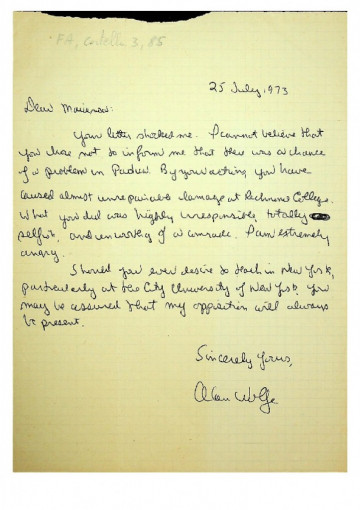 FA, cartella 3, 85
25 July, 1973
Dear Mariarosa:
Your letter shocked me. I cannot believe that
you chose not to inform me that there was a chance
of a problem in Padua. By your acting you have
caused almost unrepairable damage at Richmond College.
What you did was highly irresponsible, totally
selfish, and unworthy of a comrade. I am extremely
angry.
Should you ever desire to teach in New York,
particularly at the City University of New York, you
may be assured that my opposition will always
be present.
Sincerely Yours,
Alan Wolfe